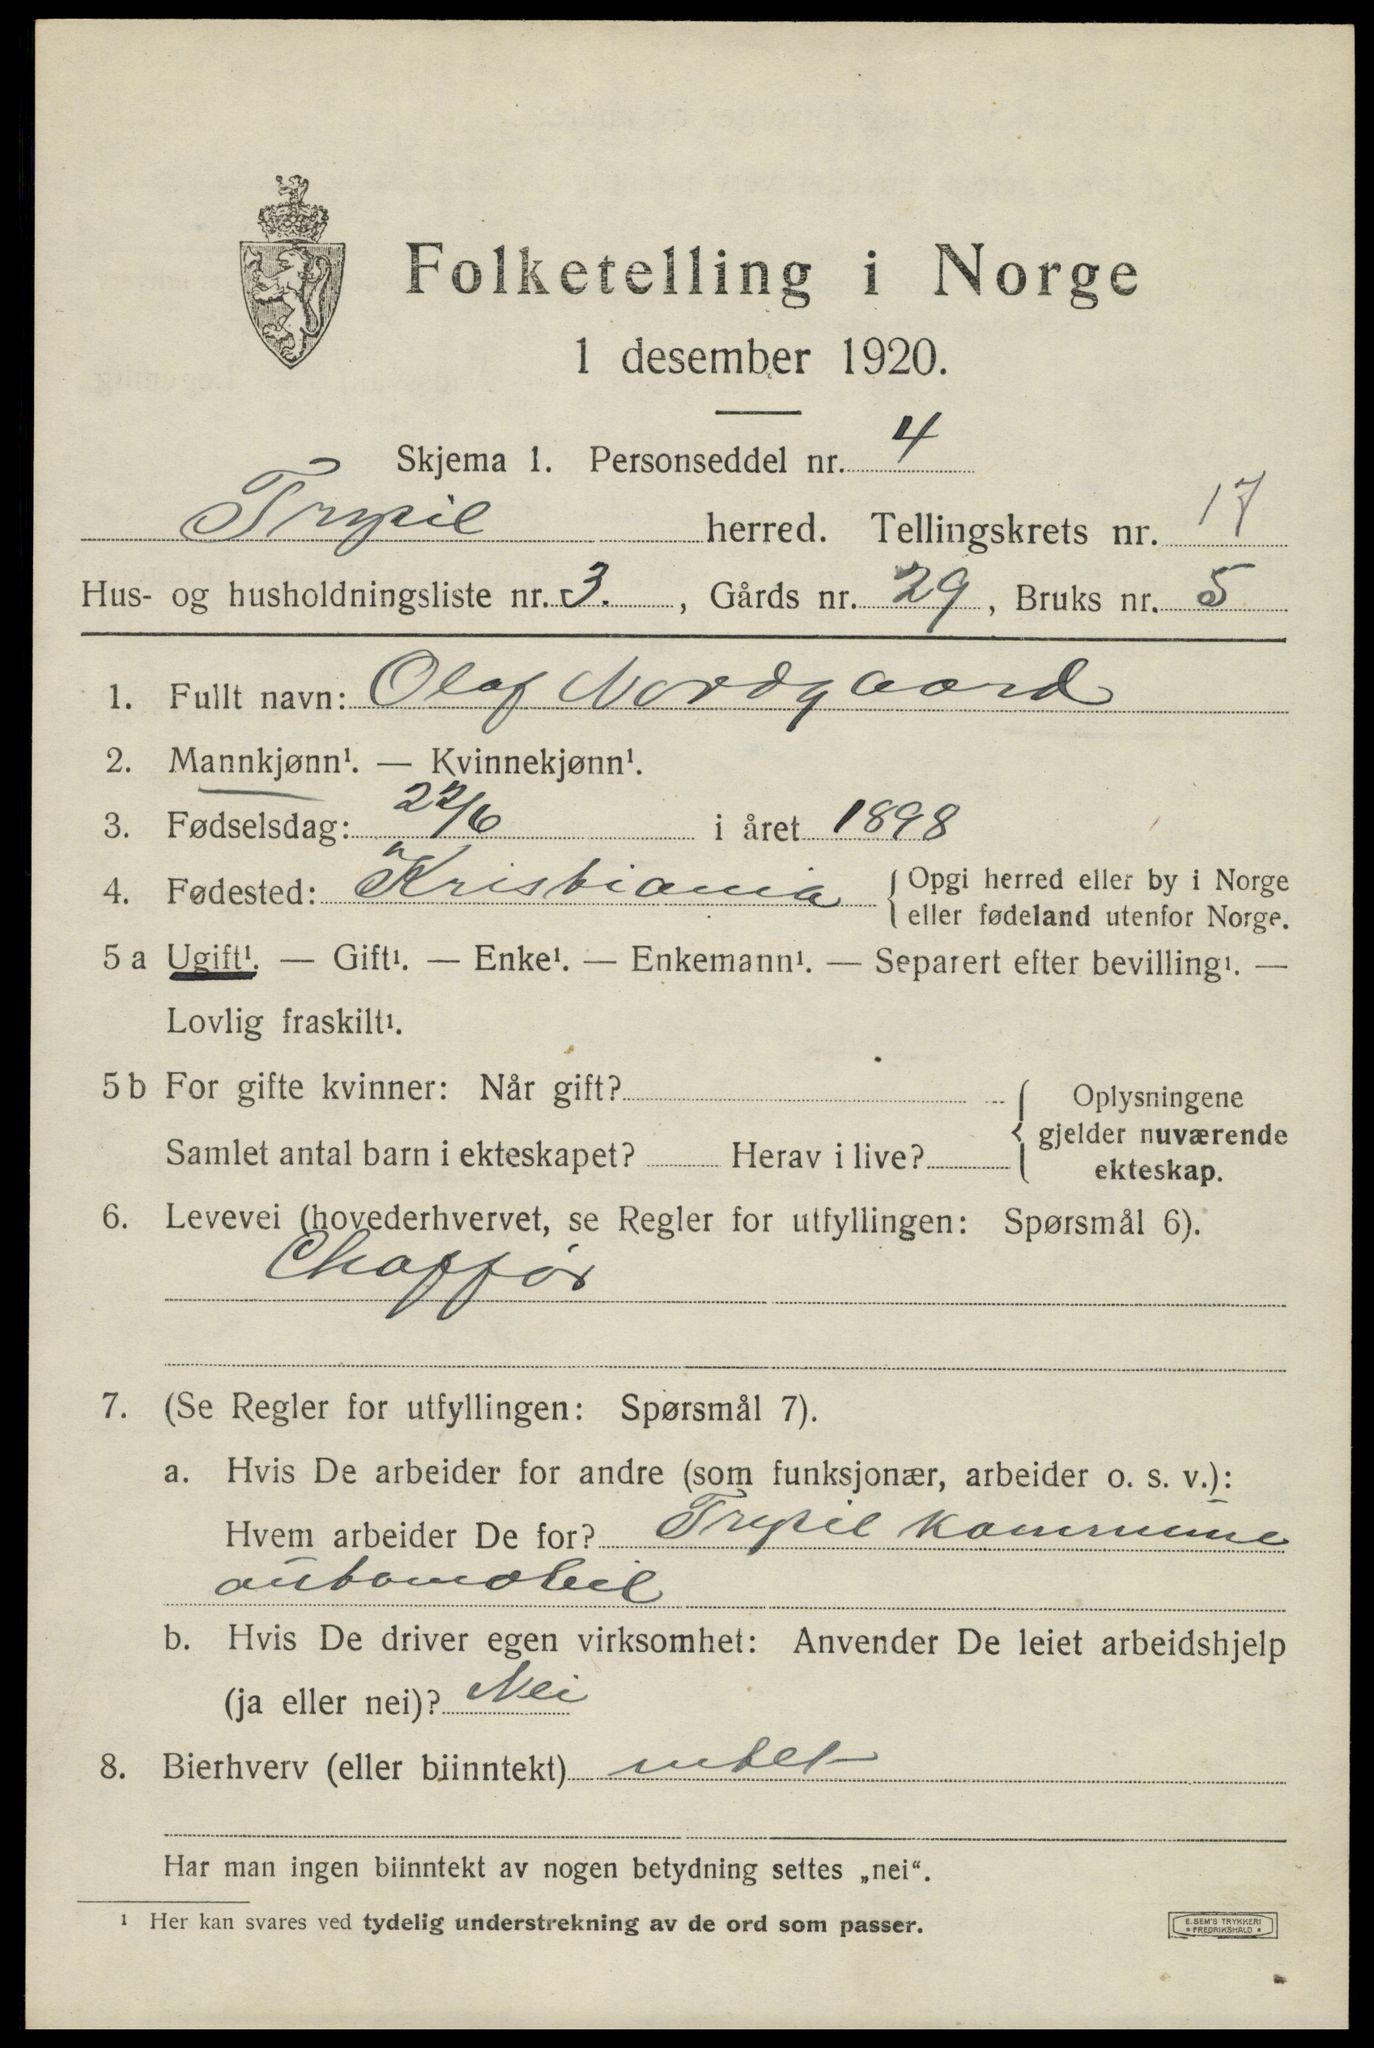 Folketelling i Norge
1 desember 1920.
Skjema 1. Personseddel nr. 4
Trysil herred. Tellingskrets nr. 17
Hus- og husholdningsliste nr. 3. , Gårds nr. 29, Bruks nr. 5
1. Fullt navn: Olaf Nordgaard
2. Mannkjønn¹. — Kvinnekjønn¹.
3. Fødselsdag: 22/6 i året 1898
4. Fødested: Kristiania { Opgi herred eller by i Norge
eller fødeland utenfor Norge.
5 a Ugift¹. — Gift¹. — Enke¹. — Enkemann¹. — Separert efter bevilling¹. —
Lovlig fraskilt¹.
5 b For gifte kvinner: Når gift? { Oplysningene
gjelder nuværende
Samlet antal barn i ekteskapet? Herav i live?
ekteskap.
6. Levevei (hovederhvervet, se Regler for utfyllingen: Spørsmål 6).
Chaffør
7. (Se Regler for utfyllingen: Spørsmål 7).
a. Hvis De arbeider for andre (som funksjonær, arbeider o. s. v.):
Hvem arbeider De for? Trysil kommune
automobil
b. Hvis De driver egen virksomhet: Anvender De leiet arbeidshjelp
(ja eller nei)? Nei
8. Bierhverv (eller biinntekt) intet
Har man ingen biinntekt av nogen betydning settes „nei“.
¹ Her kan svares ved tydelig understrekning av de ord som passer.
E. SEM'S TRYKKERI
* FREDRIKSHALD *